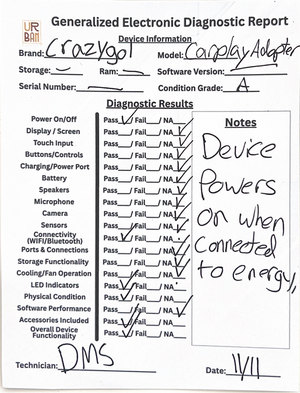 UR
BAN
Generalized Electronic Diagnostic Report
Device Information
Brand: Crazygol Model: Carplay Adapter
Storage: Ram: Software Version:
Serial Number: Condition Grade: A
Diagnostic Results
Power On/Off Pass ✓/Fail__/ NA__
Display / Screen Pass__/Fail__/ NA ✓
Touch Input Pass__/Fail__/ NA ✓
Buttons/Controls Pass__/Fail__/ NA ✓
Charging/Power Port Pass__/Fail__/ NA ✓
Battery Pass__/Fail__/ NA ✓
Speakers Pass__/Fail__/ NA ✓
Microphone Pass__/Fail__/ NA ✓
Camera Pass__/Fail__/ NA ✓
Sensors Pass__/Fail__/ NA ✓
Connectivity (WIFI/Bluetooth) Pass ✓/Fail__/ NA__
Ports & Connections Pass__/Fail__/ NA ✓
Storage Functionality Pass__/Fail__/ NA ✓
Cooling/Fan Operation Pass__/Fail__/ NA ✓
LED Indicators Pass ✓/Fail__/ NA__
Physical Condition Pass ✓/Fail__/ NA__
Software Performance Pass__/Fail__/ NA ✓
Accessories Included Pass ✓/Fail__/ NA__
Overall Device Functionality Pass ✓/Fail__/ NA__
Notes
Device
Powers
on when
connected
to energy,
Technician: DMS Date: 11/11